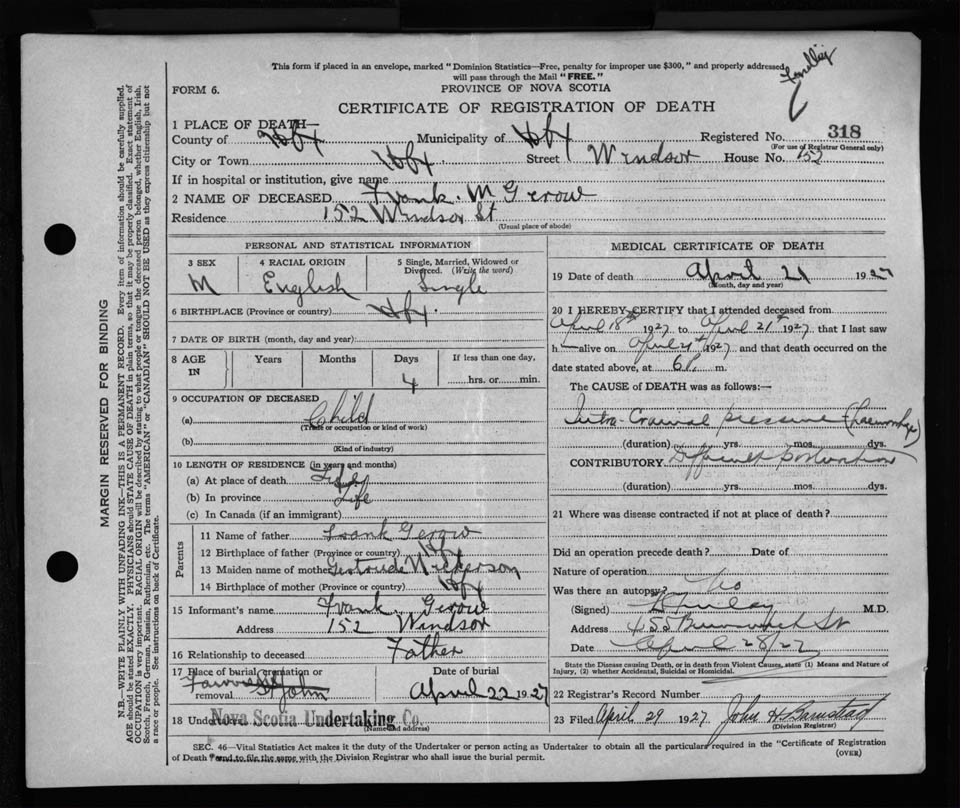 This form if placed in an envelope, marked "Dominion Statistics—Free, penalty for improper use $300," and properly addressed,
will pass through the Mail "FREE."
FORM 6.
PROVINCE OF NOVA SCOTIA
CERTIFICATE OF REGISTRATION OF DEATH
1 PLACE OF DEATH—
County of Hfx Municipality of Hfx Registered No. 318
(For use of Registrar General only)
City or Town Hfx Street Windsor House No. 152
If in hospital or institution, give name
2 NAME OF DECEASED Frank. M Gerow
Residence 152 Windsor St
(Usual place of abode)
PERSONAL AND STATISTICAL INFORMATION
3 SEX 4 RACIAL ORIGIN 5 Single, Married, Widowed or Divorced. (Write the word)
M English Single
6 BIRTHPLACE (Province or country) Hfx.
7 DATE OF BIRTH (month, day and year)
8 AGE IN Years Months Days If less than one day,
4 hrs. or min.
9 OCCUPATION OF DECEASED
(a) Child
(Trade or occupation or kind of work)
(b)
(Kind of industry)
10 LENGTH OF RESIDENCE (in years and months)
(a) At place of death Life
(b) In province Life
(c) In Canada (if an immigrant)
Parents
11 Name of father Frank Gerow
12 Birthplace of father (Province or country) Hfx
13 Maiden name of mother Gertrude Nickerson
14 Birthplace of mother (Province or country) Hfx
15 Informant's name Frank Gerow
Address 152 Windsor
16 Relationship to deceased Father
17 Place of burial, cremation or removal Date of burial
St John April 22 1927
18 Undertaker Nova Scotia Undertaking Co.
(Name and address)
MEDICAL CERTIFICATE OF DEATH
19 Date of death April 21 1927
(Month, day and year)
20 I HEREBY CERTIFY that I attended deceased from
April 18th 1927 to April 21st 1927, that I last saw
h alive on April 1927 and that death occurred on
date stated above, at 6 P. m.
The CAUSE of DEATH was as follows:—
Intra-Cranial pressure (haemorrhage)
(duration) yrs. mos. dys.
CONTRIBUTORY Difficult
(duration) yrs. mos. dys.
21 Where was disease contracted if not at place of death?
Did an operation precede death? Date of
Nature of operation
Was there an autopsy? No
(Signed) M.D.
Address 455 St
Date April 28/27
State the Disease causing Death, or in death from Violent Causes, state (1) Means and Nature of
Injury, (2) whether Accidental, Suicidal or Homicidal.
22 Registrar's Record Number
23 Filed April 29 1927 John H.
(Division Registrar)
SEC. 46—Vital Statistics Act makes it the duty of the Undertaker or person acting as Undertaker to obtain all the particulars required in the "Certificate of Registration
of Death" and to file the same with the Division Registrar who shall issue the burial permit. (OVER)
MARGIN RESERVED FOR BINDING
N.B.—WRITE PLAINLY WITH UNFADING INK—THIS IS A PERMANENT RECORD. Every item of information should be carefully supplied.
AGE should be stated EXACTLY. PHYSICIANS should STATE CAUSE OF DEATH in plain terms, so that it may be properly classified. Exact statement of
OCCUPATION is very important. RACIAL ORIGIN will be described by stating to what people or tongue the deceased person belonged, whether English, Irish,
Scotch, French, German, Russian, Ruthenian, etc. The terms "AMERICAN" or "CANADIAN" SHOULD NOT BE USED as they express citizenship but not
a race or people. See instructions on back of Certificate.